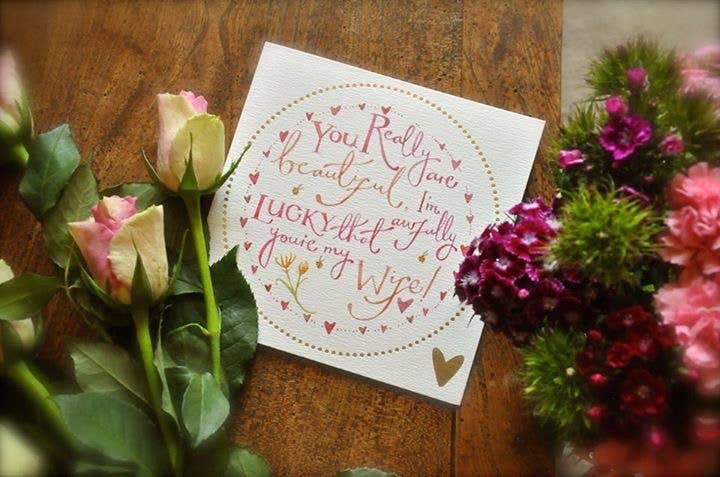 You Really are
beautiful, I'm
Lucky that awfully
you're my Wife!